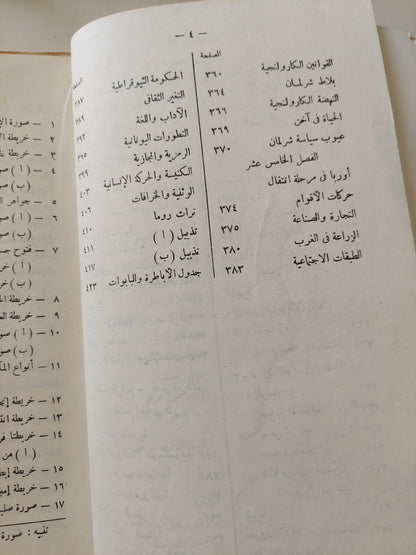 — ٤ —
الصفحة
القوانين الكارولنجية ٣٦٠
بلاط شرلمان ٣٦٤
النهضة الكارولنجية ٣٦٦
الحياة فى آخن ٣٦٩
عيوب سياسة شرلمان ٣٧٠
الفصل الخامس عشر
أوربا فى مرحلة انتقال
حركات الأقوام ٣٧٤
التجارة والصناعة ٣٧٥
الزراعة فى الغرب ٣٨٠
الطبقات الاجتماعية ٣٨٣
الصفحة
الحكومة الثيوقراطية ٣٨٧
التغير الثقافى ٣٨٩
الآداب واللغة ٣٩٢
التطورات اليونانية ٣٩٥
الرمزية والمجازية ٣٩٩
الكنيسة والحركة الإنسانية ٤٠٣
الوثنية والخرافات ٤٠٦
تراث روما ٤١٠
تذييل ( ا ) ٤١١
تذييل (ب) ٤١٧
جدول الأباطرة والبابوات ٤٢٣
١ — صورة
٢ — خريطة
٣ — خريطة
٤ — ( ا )
(ب)
٥ — جواهر
٦ — ( ا )
(ب) صو
٧ — فتوح
( ا ) خر
(ب) خر
٨ — خريطة
٩ — خريطة
١٠ — ( ا ) صو
(ب) صو
١١ — أنواع
١٢ — خريطة
١٣ — خريطة
١٤ — خريطتا
( ا ) من
١٥ — خريطة
١٦ — خريطة
١٧ — صورة
تنبيه : صورة